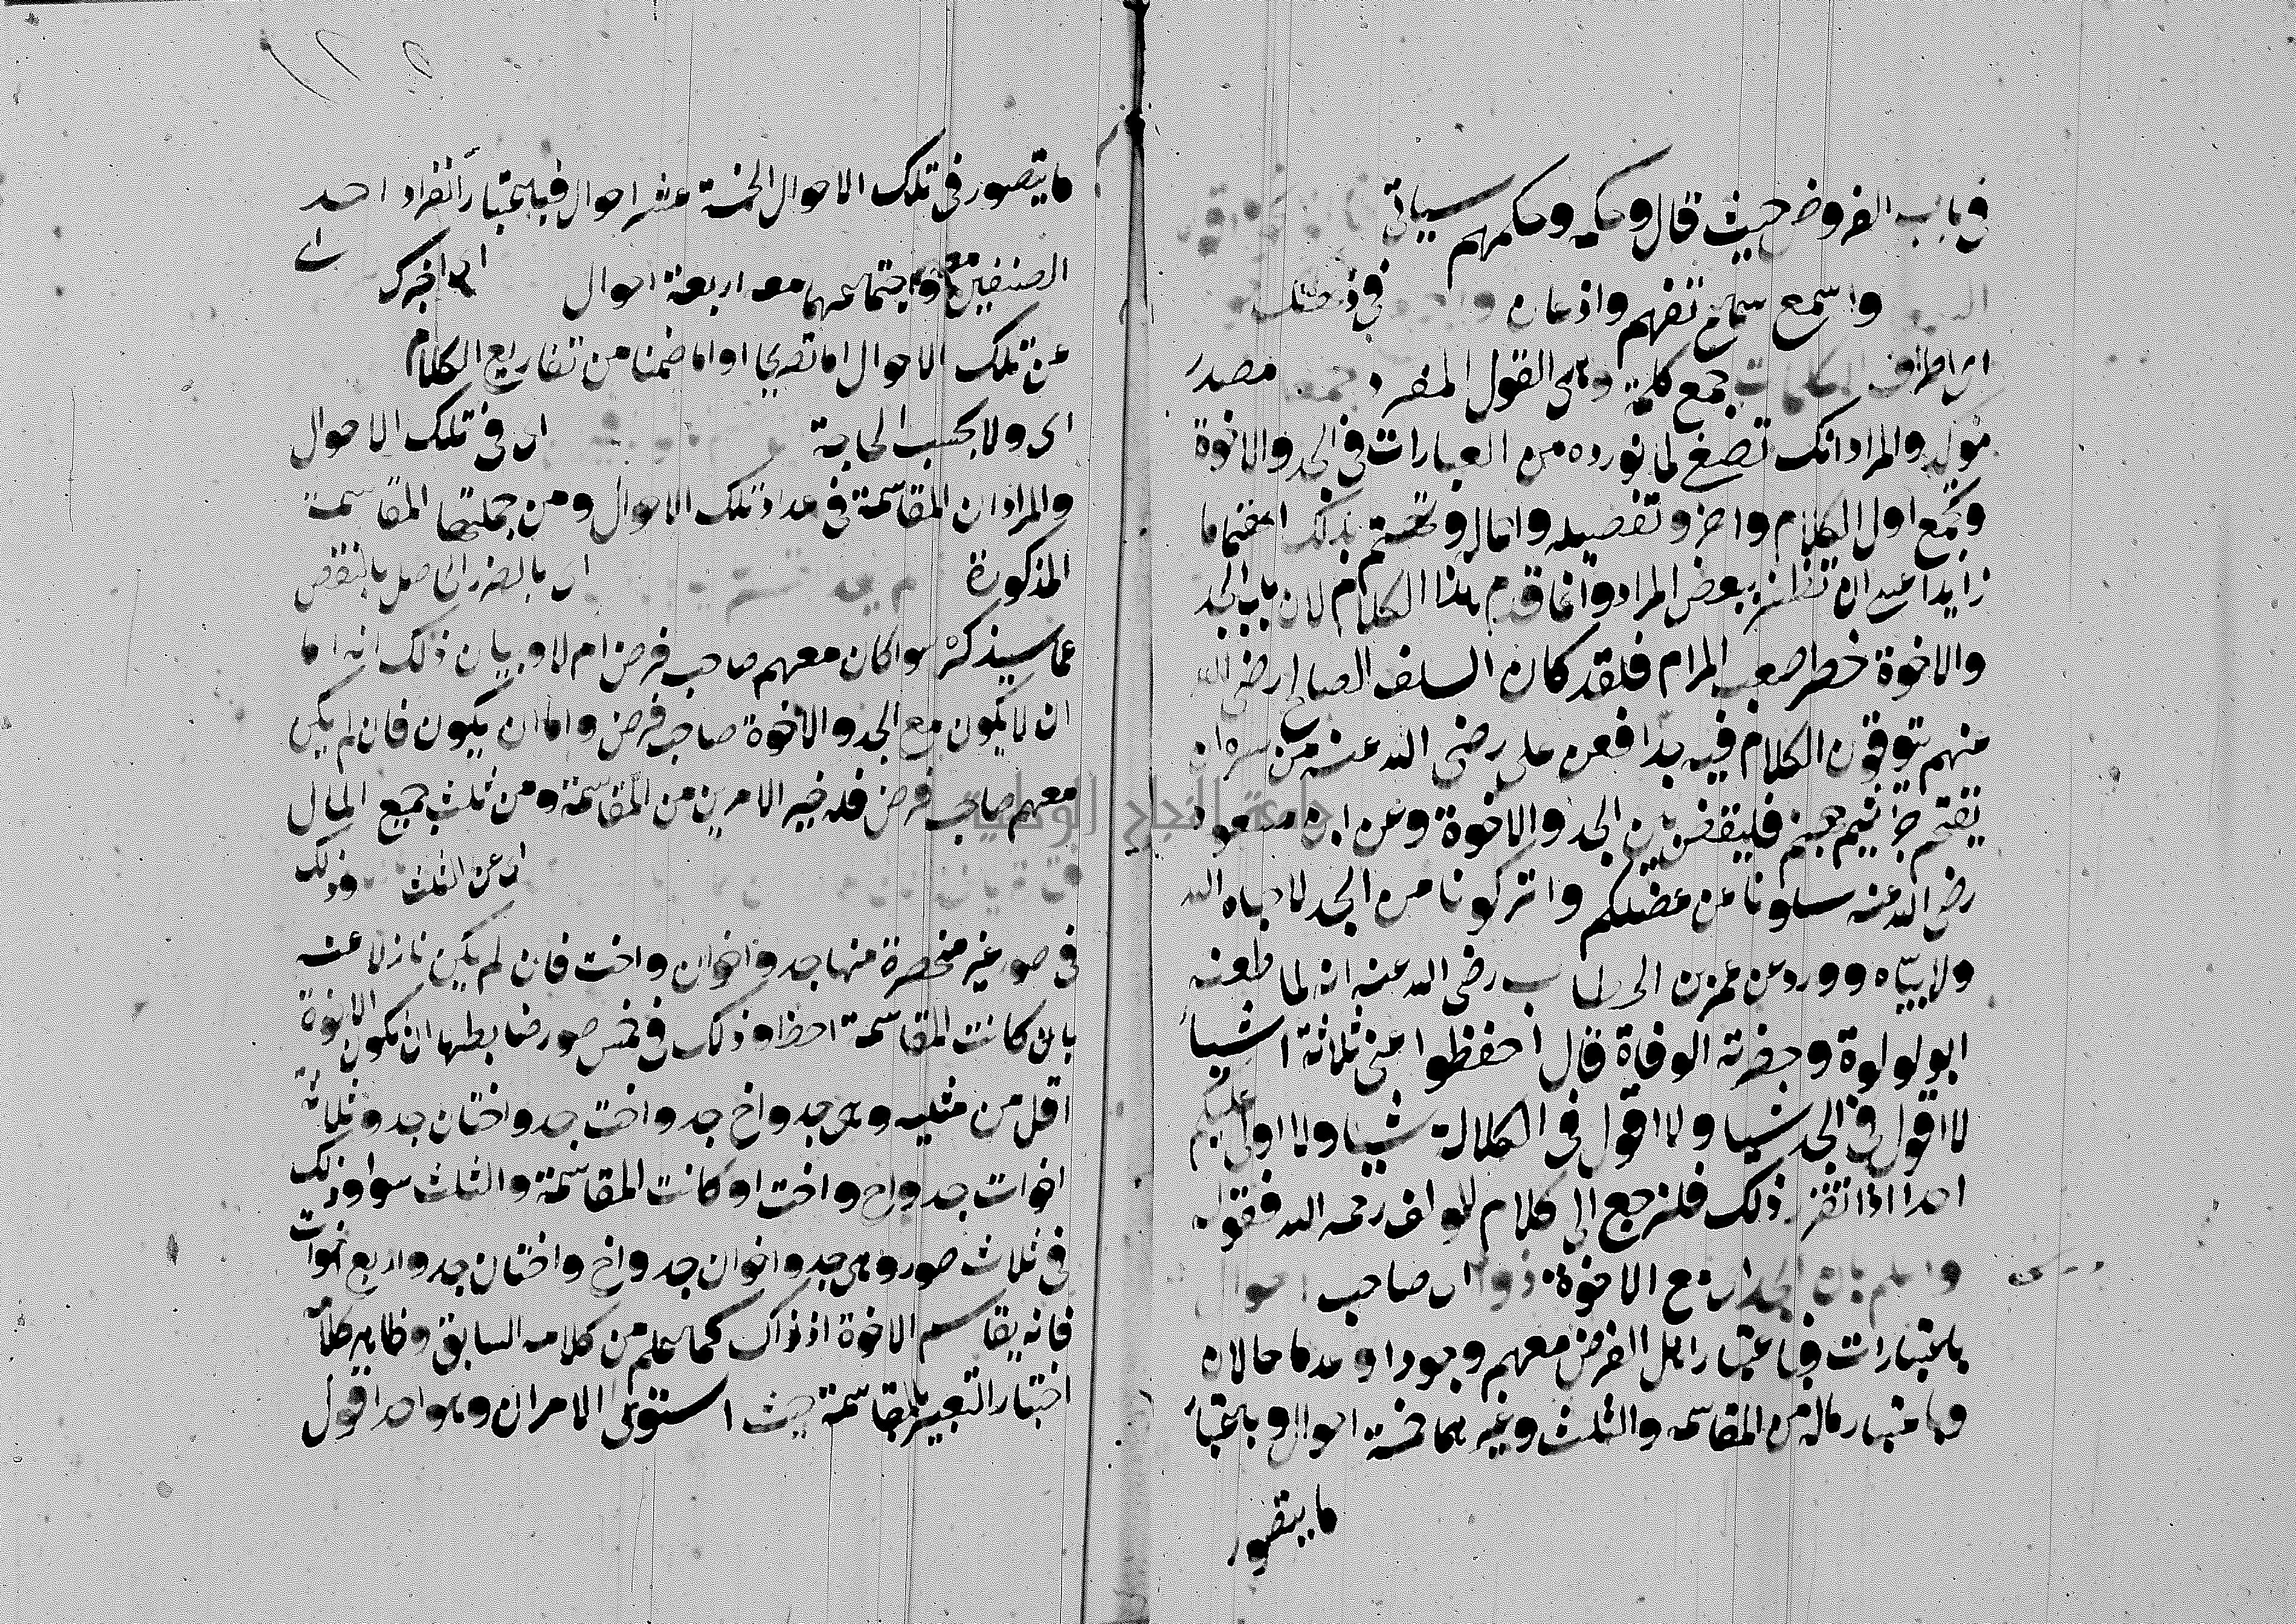 في باب الفروض حيث قال وحكمه وحكمهم سياتي
واسمع سماع تفهم واذعان في ذهنك
اي اطراف الكلمات جمع كلمة وهي القول المفرد جمعا مصدر
موكد والمراد انك تصغ لما نورده من العبارات في الجد والاخوة
وتجمع اول الكلام واخره وتفصيله واجماله وتهتم بذلك اهتماما
زايدا عسى ان تظفر ببعض المراد وانما قدم هذا الكلام لان باب الجد
والاخوة خطر صعب المرام فلقد كان السلف الصالح رضي الله
منهم يتوقون الكلام فيه جدا فعن علي رضي الله عنه من سره ان
يقتحم جراثيم جهنم فليقض بين الجد والاخوة وعن ابن مسعود
رضي الله عنه سلونا عن عضلكم واتركونا من الجد لا حياه الله
ولا بياه وورد عن عمر بن الخطاب رضي الله عنه انه لما طعنه
ابو لولوة وحضرته الوفاة قال احفظوا عني ثلاثة اشيا
لا اقول في الجد شيا ولا اقول في الكلالة شيا ولا اولي عليكم
احدا اذا تقرر ذلك فلنرجع الى كلام المولف رحمه الله فقوله
واعلم بان الجد اي مع الاخوة ذو اي صاحب احوال
باعتبارات فباعتبار اهل الفرض معهم وجودا وعدما حالان
وباعتبار ماله من المقاسمه والثلث وغيرهما خمسة احوال وباعتبار
ما يتصور
ما يتصور في تلك الاحوال الخمسة عشر احوال فباعتبار انفراد احد
الصنفين معه واجتماعهما معه اربعة احوال اي اخبرك
عن تلك الاحوال اما تصريحا واما ضمنا من تفاريع الكلام
اي ولا بحسب الحاجة اي في تلك الاحوال
والمراد ان المقاسمة في عداد تلك الاحوال ومن جملتها المقاسمة
المذكورة اي بالضرر الحاصل بالنقص
عما سيذكره سوا كان معهم صاحب فرض ام لا وبيان ذلك انه اما
ان لا يكون مع الجد والاخوة صاحب فرض واما ان يكون فان لم يكن
معهم صاحب فرض فله خير الامرين من المقاسمة ومن ثلث جميع المال
اي عن الثلث وذلك
في صور غير منحصرة منها جد واخوان واخت فان لم يكن نازلا عنه
بان كانت المقاسمة احظ وذلك في خمس صور ضابطها ان تكون الاخوة
اقل من مثليه وهي جد واخ جد واخت جد واختان جد وثلاث
اخوات جد واخ واخت او كانت المقاسمة والثلث سوا وذلك
في ثلاث صور وهي جد واخوان جد واخ واختان جد واربع اخوات
فانه يقاسم الاخوة اذ ذاك كما علم من كلامه السابق وظاهر كلامه
اختيار التعبير بالمقاسمة حيث استوى الامران وهو احد اقول